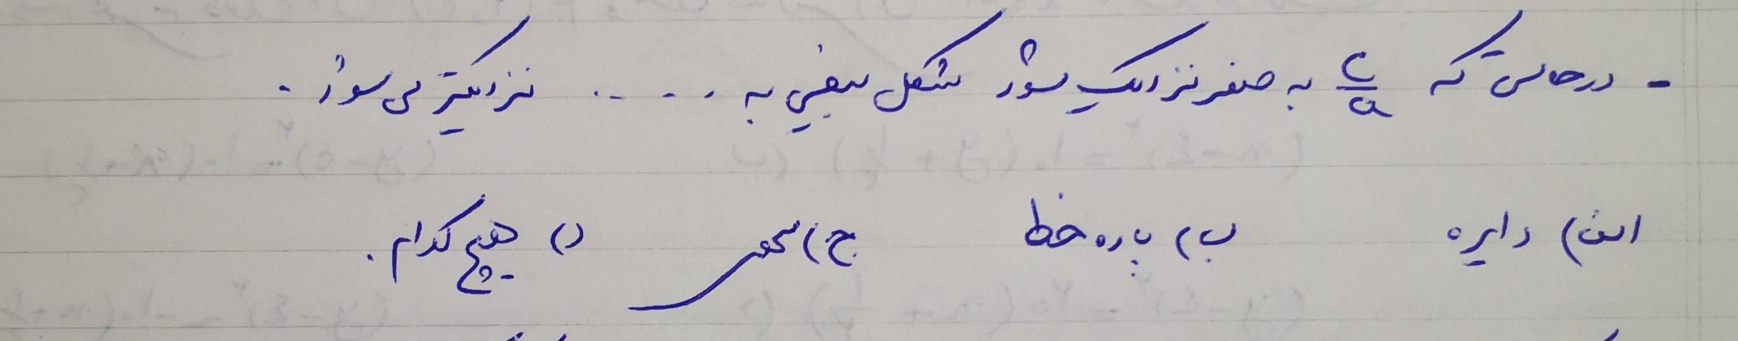 - درحالتی که c/a به صفر نزدیک شود شکل بیضی به ..... نزدیکتر می شود.
الف) دایره ب) پاره خط ج) محور د) هیچ کدام.